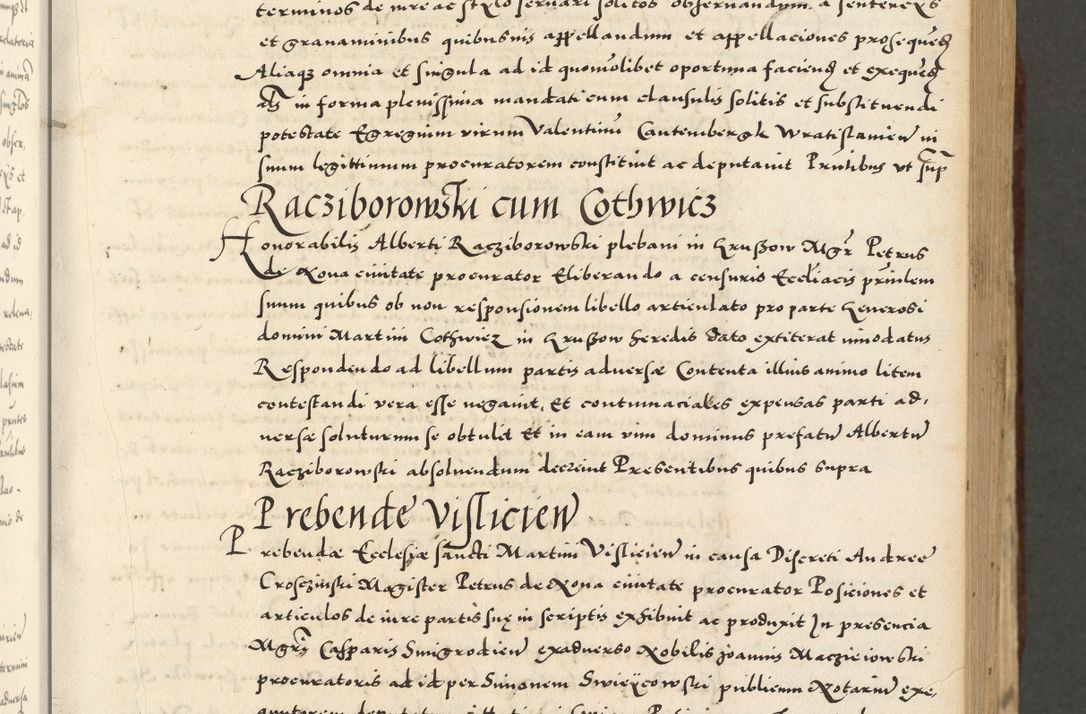 terminos de iure ac stylo servari solitos observandum a sentenciis
et gravaminibus quibusvis appellandum et appellaciones prosequend
Aliaqz omnia et singula ad id quomolibet oportuna faciend et exequend
in forma plenissima mandati cum clausulis solitis et substituendi
potestate Egregium virum Valentinu Cautembergk Wratislavien in
suum legittimum procuratorem constituit ac deputavit Prntibus ut sup
Racziborowski cum Cothwicz
Honorabilis Alberti Racziborowski plebani in hrußow Mgr Petrus
de Nova civitate procurator Eliberando a censuris Eccliacis prinlem
suum quibus ob non responsionem libello articulato pro parte Generosi
domini Martini Cothwicz in hrußow heredis dato extiterat innodatus
Respondendo ad libellum partis adversæ Contenta illius animo litem
contestandi vera esse negavit, Et contumaciales expensas parti ad,
versæ soluturum se obtulit Et in eam vim dominus prefatu Albertu
Racziborowski absolvendum decrevit Presentibus quibus supra
Prebende Vislicien
Prebendæ Ecclesiæ sancti Martini Vislicien in causa Discreti Andree
Crosczinski Magister Petrus de Nova civitate procurator Posiciones et
articulos de iure partis suę in scriptis exhibuit ac produxit In presencia
Mgri Casparis Smigrodien exadverso Nobilis Joannis Macziejowski
procuratoris ad id per Simonem Swieýcowski publicum Notariu exe,